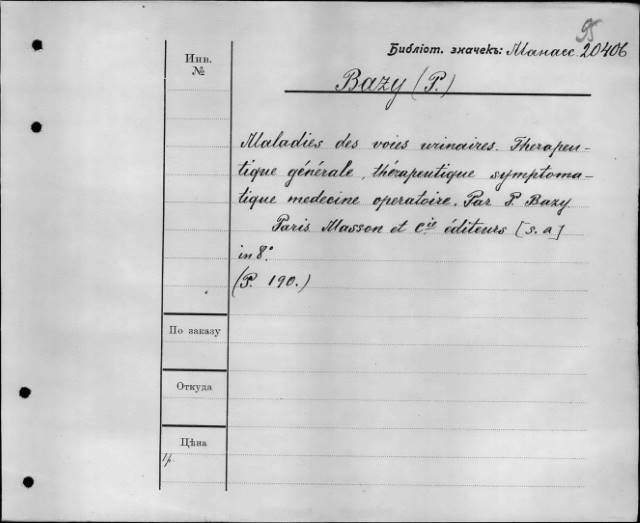 95
Библіот. значекъ: Манасс. 20406
Инв.
№
Bazy (P.)
Maladies des voies urinaires. Therapeu-
tique générale, thérapeutique symptoma-
tique medecine operatoire. Par P. Bazy
Paris Masson et Cie éditeurs [s. a]
in 8°.
(P. 190.)
По заказу
Откуда
Цѣна
1 р.